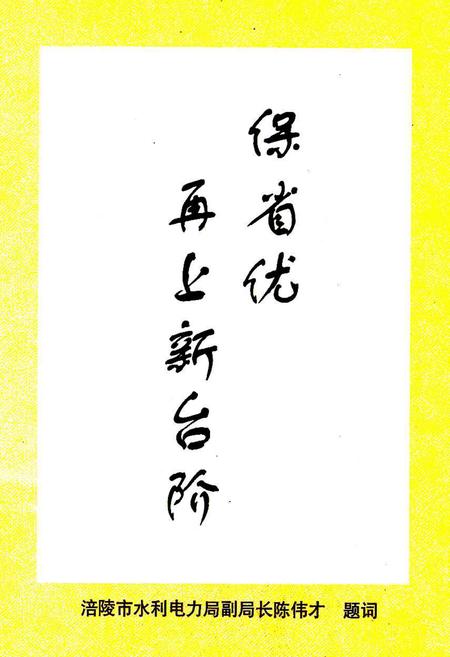 保省优
再上新台阶
涪陵市水利电力局副局长陈伟才 题词